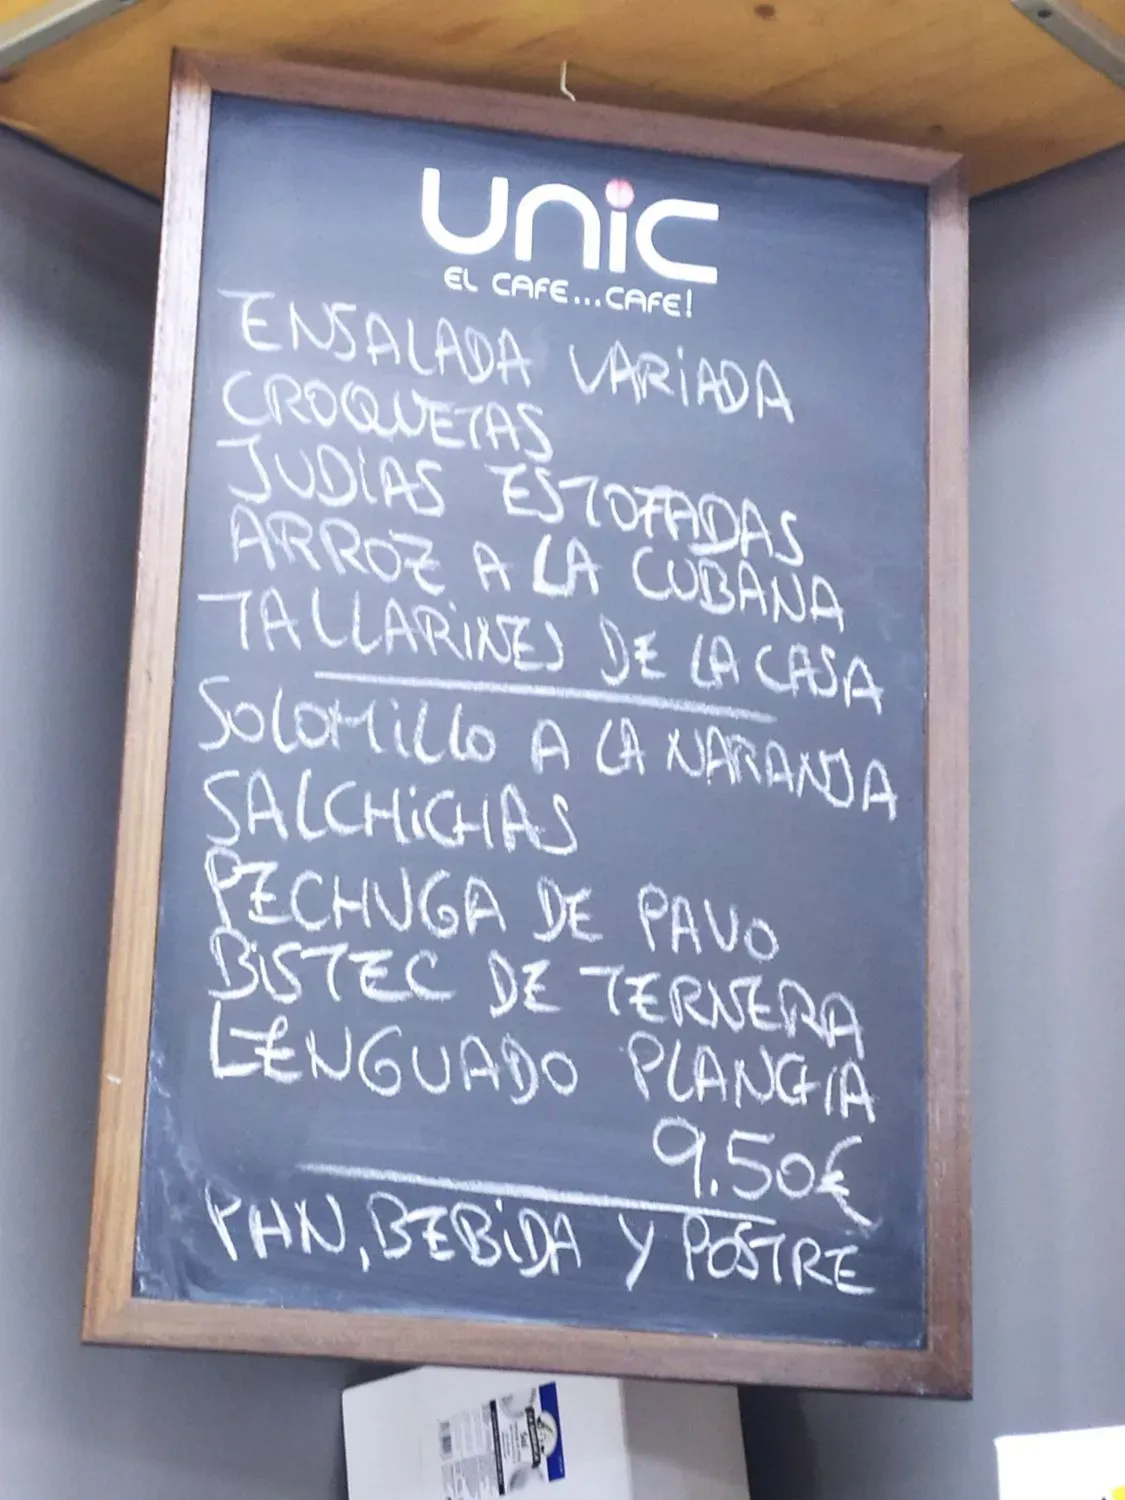 UNiC
EL CAFE...CAFE!
ENSALADA VARIADA
CROQUETAS
JUDIAS ESTOFADAS
ARROZ A LA CUBANA
TALLARINES DE LA CASA
SOLOMILLO A LA NARANJA
SALCHICHAS
PECHUGA DE PAVO
BISTEC DE TERNERA
LENGUADO PLANCHA
9.50€
PAN, BEBIDA Y POSTRE
Sal